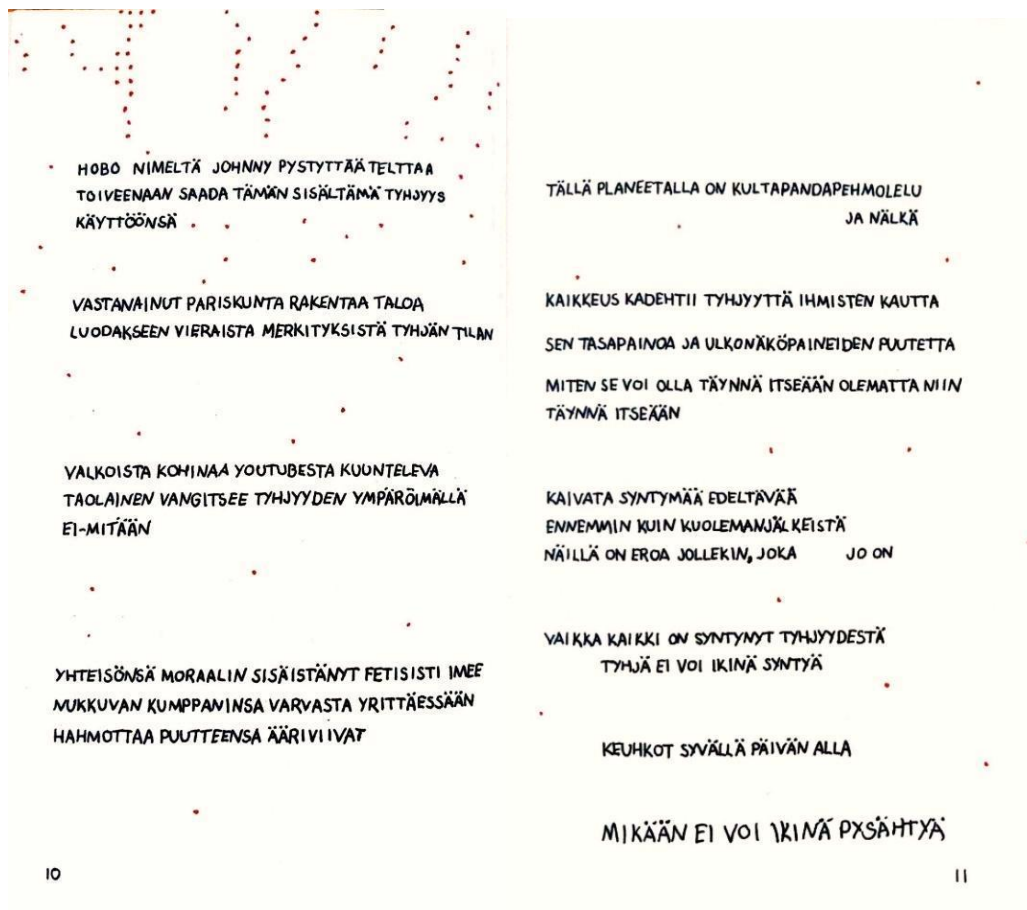 HOBO NIMELTÄ JOHNNY PYSTYTTÄÄ TELTTAA
TOIVEENAAN SAADA TÄMÄN SISÄLTÄMÄ TYHJYYS
KÄYTTÖÖNSÄ
VASTANAINUT PARISKUNTA RAKENTAA TALOA
LUODAKSEEN VIERAISTA MERKITYKSISTÄ TYHJÄN TILAN
VALKOISTA KOHINAA YOUTUBESTA KUUNTELEVA
TAOLAINEN VANGITSEE TYHJYYDEN YMPÄRÖIMÄLLÄ
EI-MITÄÄN
YHTEISÖNSÄ MORAALIN SISÄISTÄNYT FETISISTI IMEE
NUKKUVAN KUMPPANINSA VARVASTA YRITTÄESSÄÄN
HAHMOTTAA PUUTTEENSA ÄÄRIVIIVAT
10
TÄLLÄ PLANEETALLA ON KULTAPANDAPEHMOLELU
JA NÄLKÄ
KAIKKEUS KADEHTII TYHJYYTTÄ IHMISTEN KAUTTA
SEN TASAPAINOA JA ULKONÄKÖPAINEIDEN PUUTETTA
MITEN SE VOI OLLA TÄYNNÄ ITSEÄÄN OLEMATTA NIIN
TÄYNNÄ ITSEÄÄN
KAIVATA SYNTYMÄÄ EDELTÄVÄÄ
ENNEMMIN KUIN KUOLEMANJÄLKEISTÄ
NÄILLÄ ON EROA JOLLEKIN, JOKA JO ON
VAIKKA KAIKKI ON SYNTYNYT TYHJYYDESTÄ
TYHJÄ EI VOI IKINÄ SYNTYÄ
KEUHKOT SYVÄLLÄ PÄIVÄN ALLA
MIKÄÄN EI VOI IKINÄ PYSÄHTYÄ
11